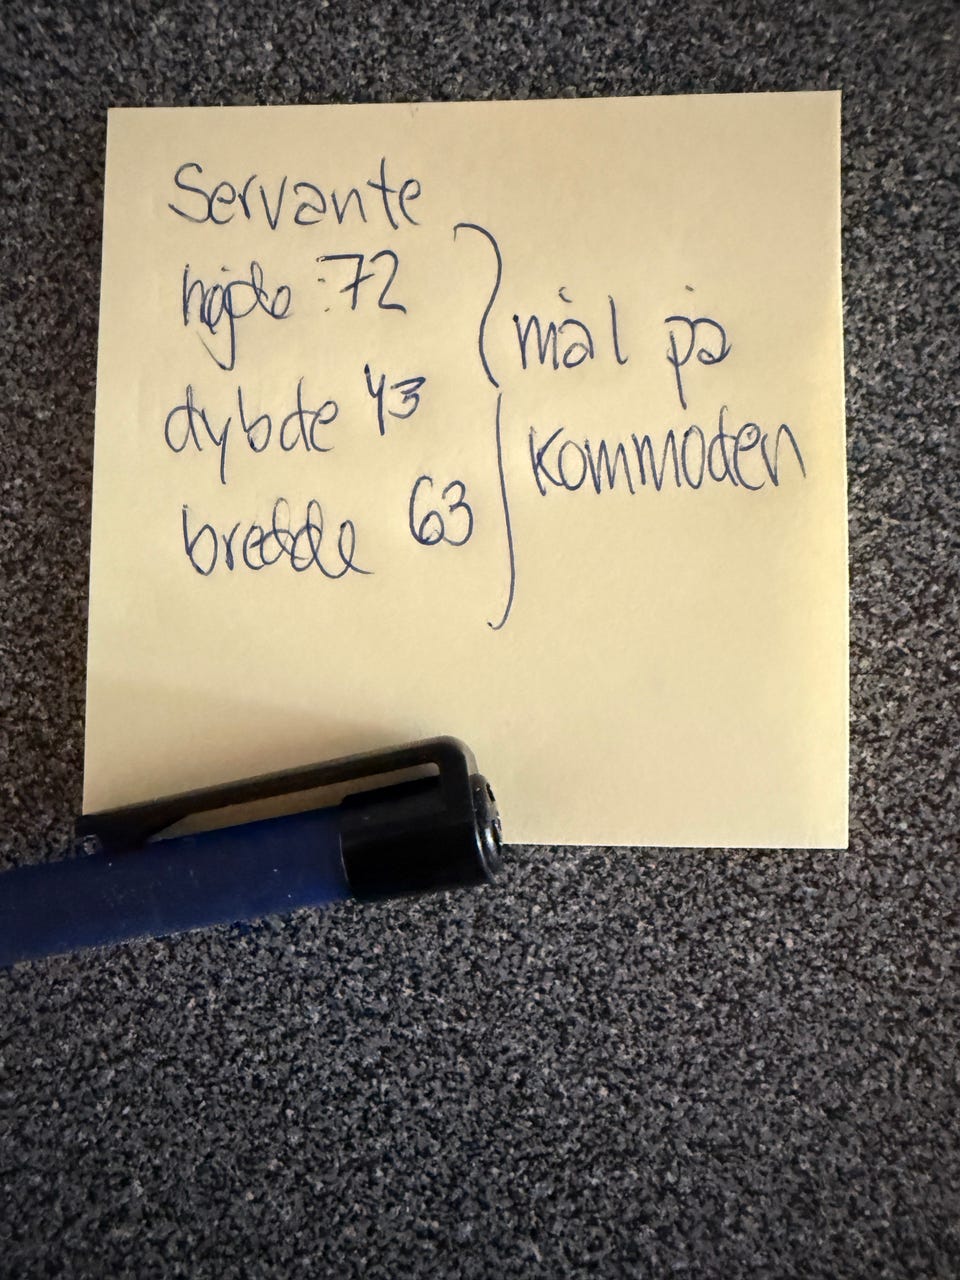 Servante
høyde : 72
dybde 43
bredde 63
mål på
kommoden